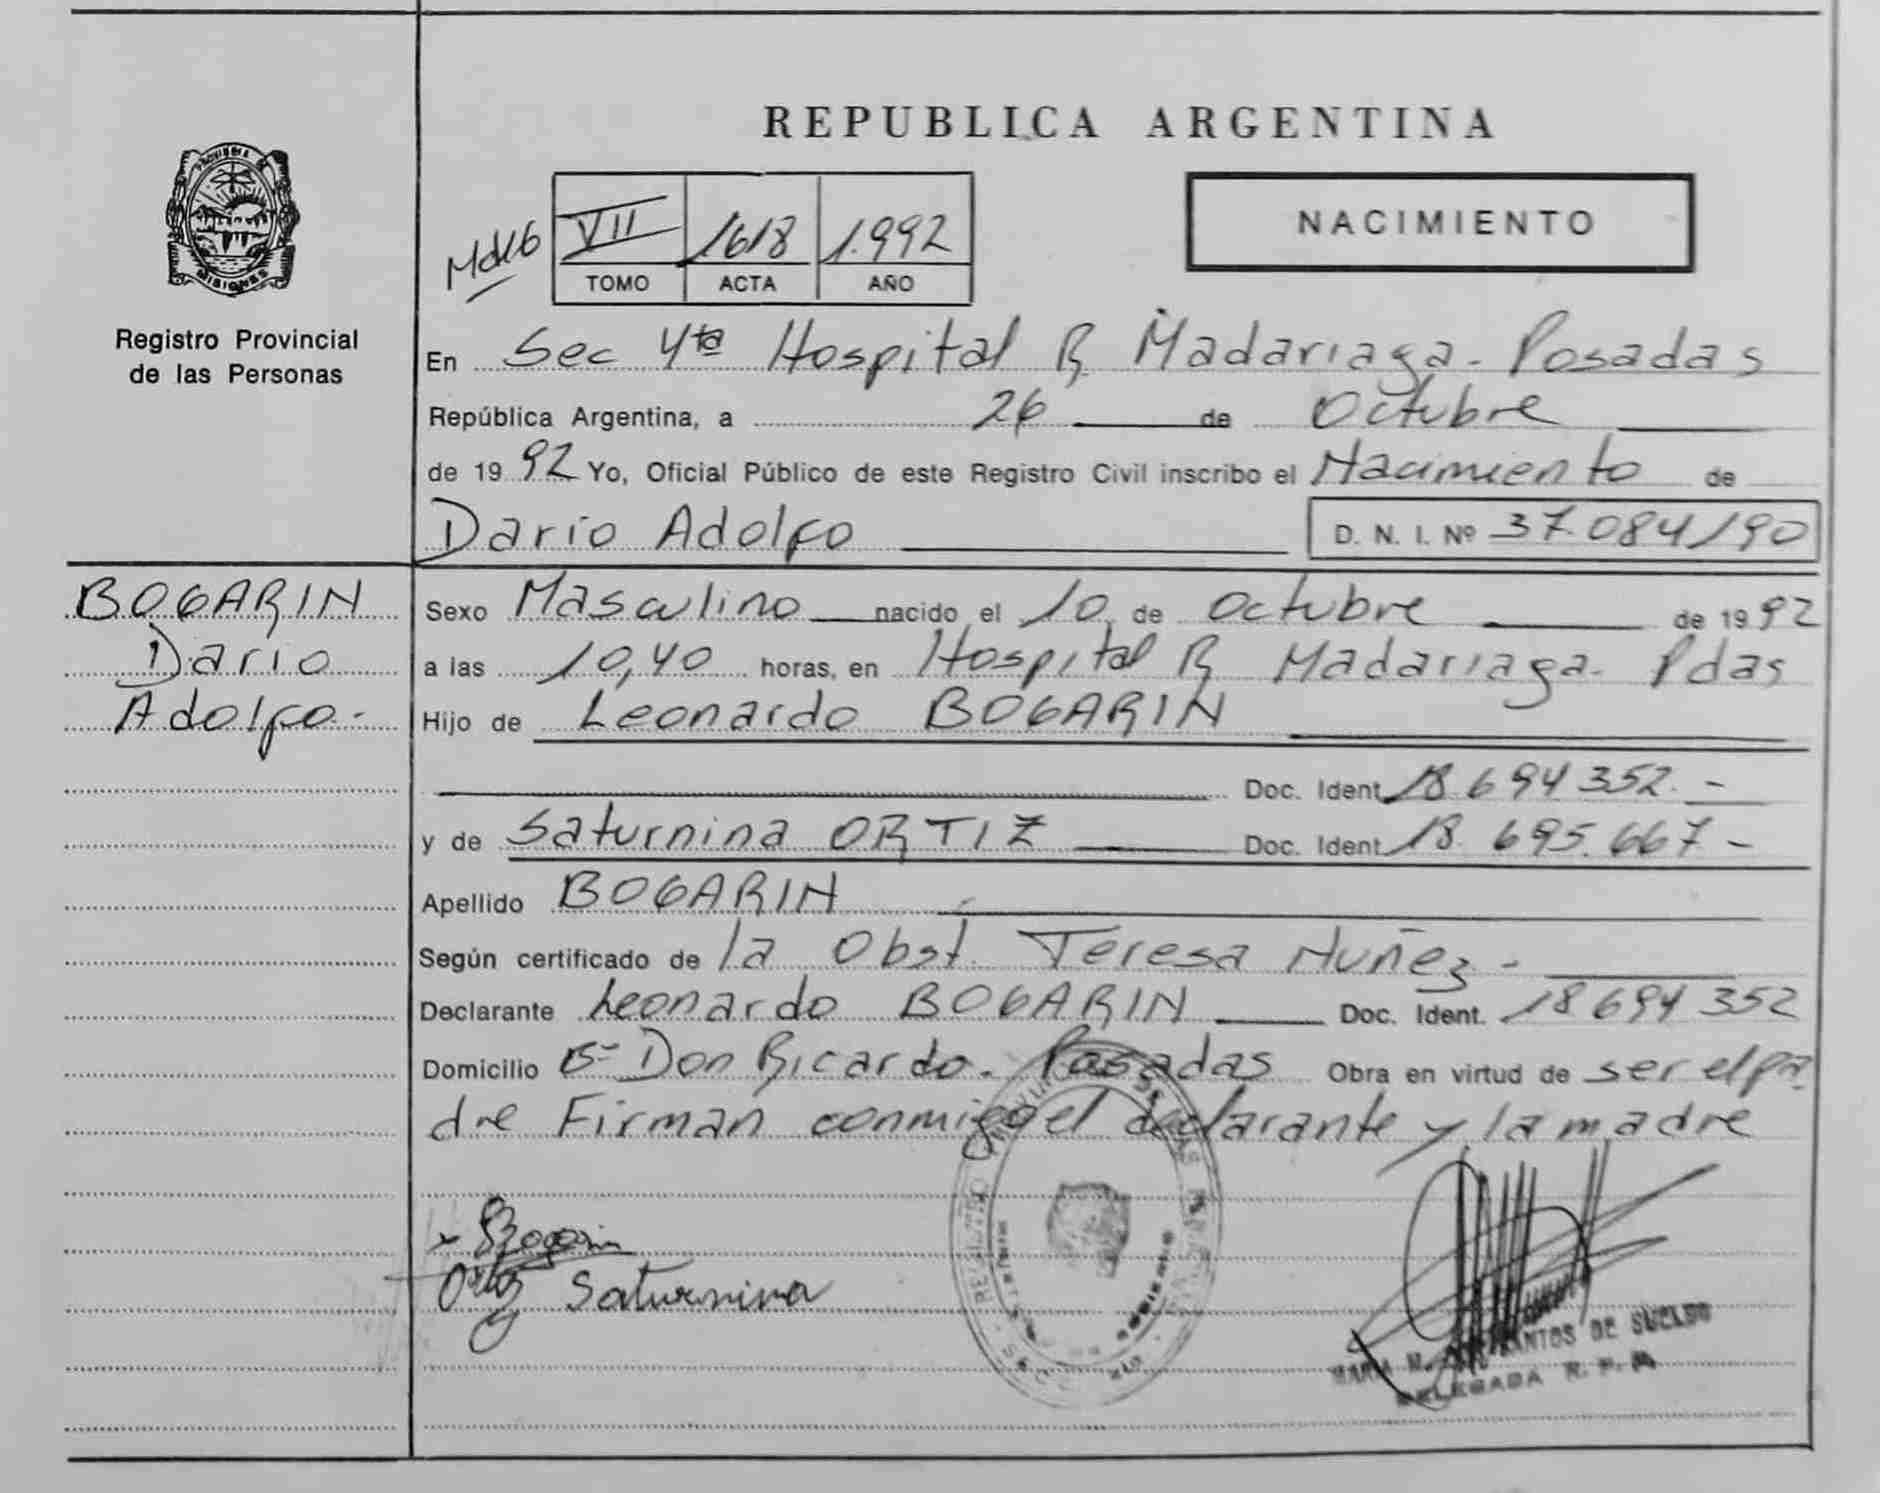 REPUBLICA ARGENTINA
PROVINCIA DE
MISIONES
Registro Provincial
de las Personas
VII 1618 1.992
TOMO ACTA AÑO
NACIMIENTO
En Sec 4ta Hospital R Madariaga - Posadas
República Argentina, a 26 de Octubre
de 1992 Yo, Oficial Público de este Registro Civil inscribo el Nacimiento de
Dario Adolfo D. N. I. Nº 37.084190
BOGARIN
Dario
Adolfo.-
Sexo Masculino nacido el 10 de Octubre de 1992
a las 10,40 horas, en Hospital R Madariaga - Pdas
Hijo de Leonardo BOGARIN
Doc. Ident 18 694 352. -
y de Saturnina ORTIZ Doc. Ident 18. 695.667 -
Apellido BOGARIN
Según certificado de la Obst. Teresa Nuñez -
Declarante Leonardo BOGARIN Doc. Ident. 18694352
Domicilio Bº Don Ricardo - Posadas Obra en virtud de ser el pa-
dre Firman conmigo el declarante y la madre
x Bogarin
Ortiz Saturnina
MARIA M. DE SUELDO
DELEGADA R. P.